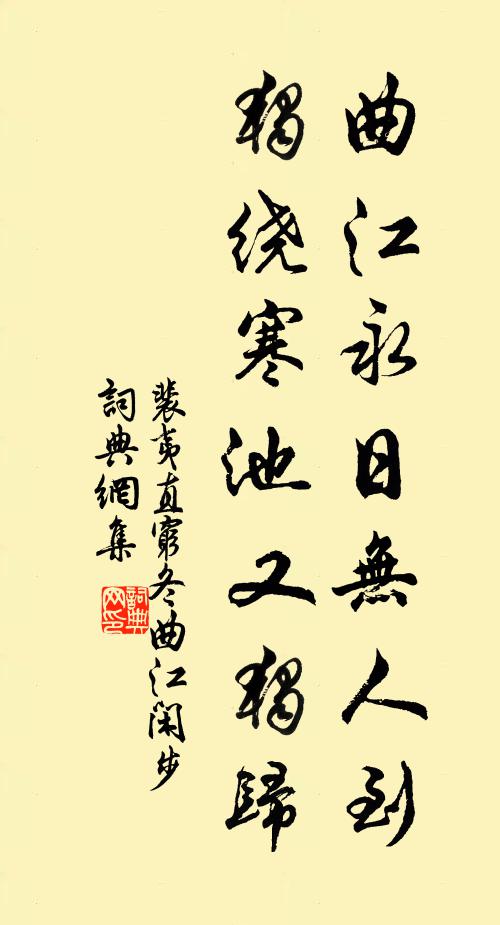 曲江永日無人到
獨繞寒池又獨歸
裴夷直窮冬曲江閑步
詞典網集
詞典網印